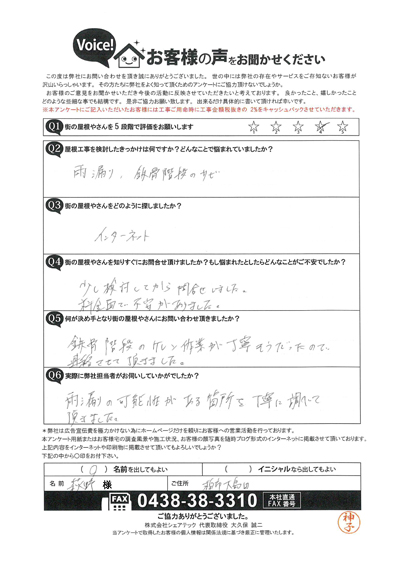 Voice!
お客様の声をお聞かせください
この度は弊社にお問い合わせを頂き誠にありがとうございました。世の中には弊社の存在やサービスをご存知ないお客様が
沢山いらっしゃいます。その方たちに弊社をよく知って頂くためのアンケートにご協力頂けないでしょうか。
お客様のご意見をお聞かせいただき今後の活動に反映させていただきたいと考えております。良かったこと、嬉しかったこと
どのような些細な事でも結構です。是非ご協力お願い致します。出来るだけ具体的に書いて頂ければ幸いです。
※本アンケートにご記入いただいたお客様には工事ご用命時に工事金額税抜きの2%をキャッシュバックさせていただきます。
Q1 街の屋根やさんを5段階で評価をお願いします ☆ ☆ ☆ ☆ ☆
Q2 屋根工事を検討したきっかけは何ですか?どんなことで悩まれていましたか?
雨漏り、鉄骨階段のサビ
Q3 街の屋根やさんをどのように探しましたか?
インターネット
Q4 街の屋根やさんを知りすぐにお問合せ頂けましたか?もし悩まれたとしたらどんなことがご不安でしたか?
少し検討してから問合せしました。
料金面で不安がありました。
Q5 何が決め手となり街の屋根やさんにお問い合わせ頂きましたか?
鉄骨階段のケレン作業が丁寧そうだったので、
連絡させて頂きました。
Q6 実際に弊社担当者がお伺いしていかがでしたか?
雨漏りの可能性がある箇所を丁寧に調べて
頂きました。
*弊社は広告宣伝費を極力かけない為にホームページだけを頼りにお客様への営業活動を行っております。
本アンケート用紙またはお客様宅の調査風景や施工状況、お客様の顔写真を随時ブログ形式のインターネットに掲載させて頂いております。
上記内容をインターネットや印刷物に掲載させて頂いてもよろしいでしょうか?
下記の中から○印をお付け下さい。
(○)名前を出してもよい ( )イニシャルなら出してもよい
名前 荻野 様 ご住所
FAX 0438-38-3310 本社直通 FAX番号
ご協力ありがとうございました。
株式会社シェアテック 代表取締役 大久保 誠二
当アンケートで取得したお客様の個人情報は関係法規に基づき厳正に管理いたします。
神子